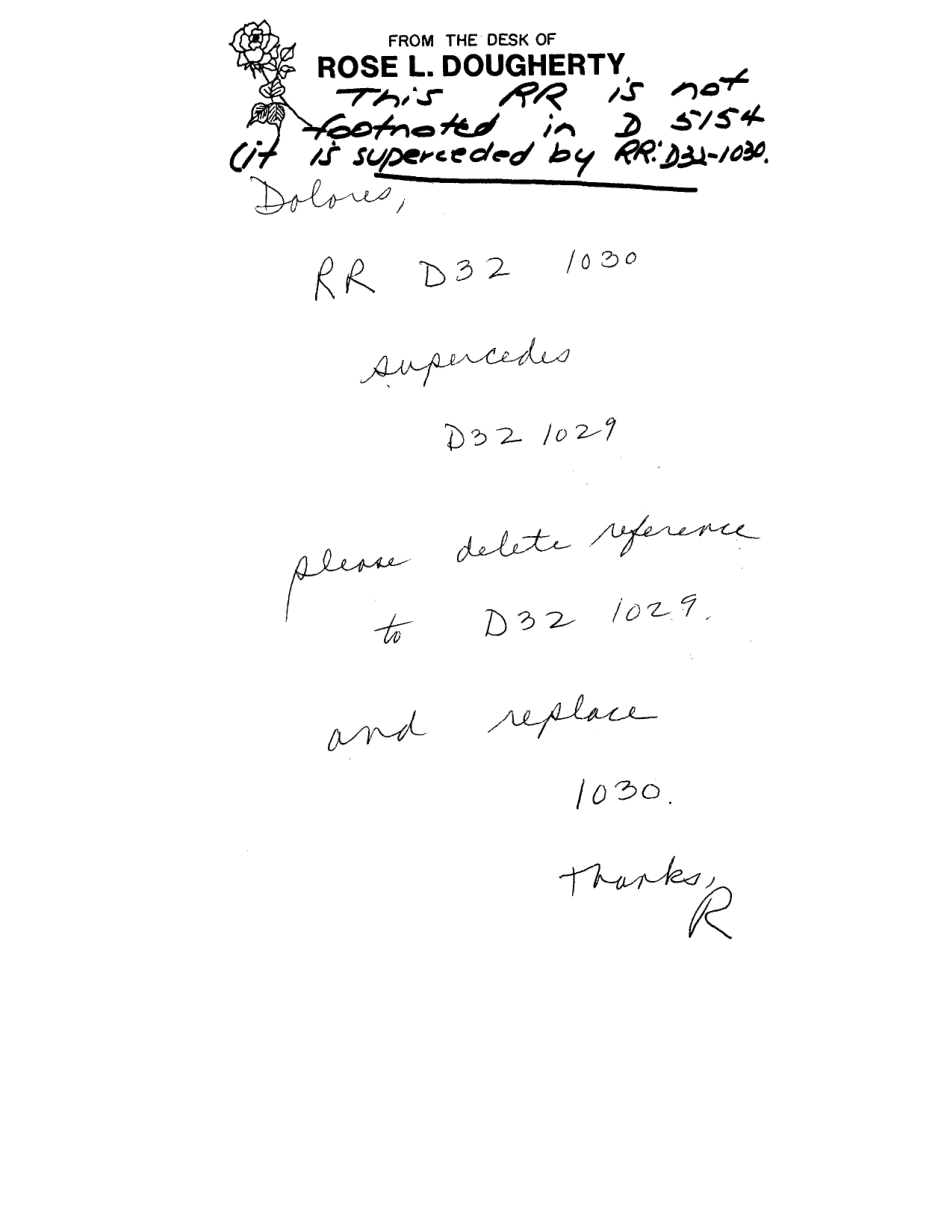 FROM THE DESK OF
ROSE L. DOUGHERTY
This RR is not
footnoted in D 5154
(it is superceded by RR: D32-1030.
Dolores,
RR D32 1030
supercedes
D32 1029
please delete reference
to D32 1029.
and replace
1030.
Thanks,
R